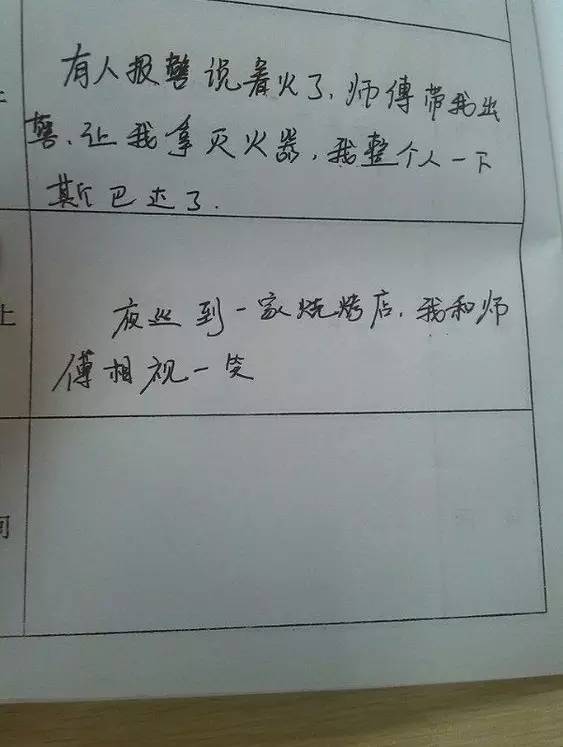 有人报警说着火了，师傅带我出
警，让我拿灭火器，我整个人一下
斯巴达了.
夜巡到一家烧烤店，我和师
傅相视一笑